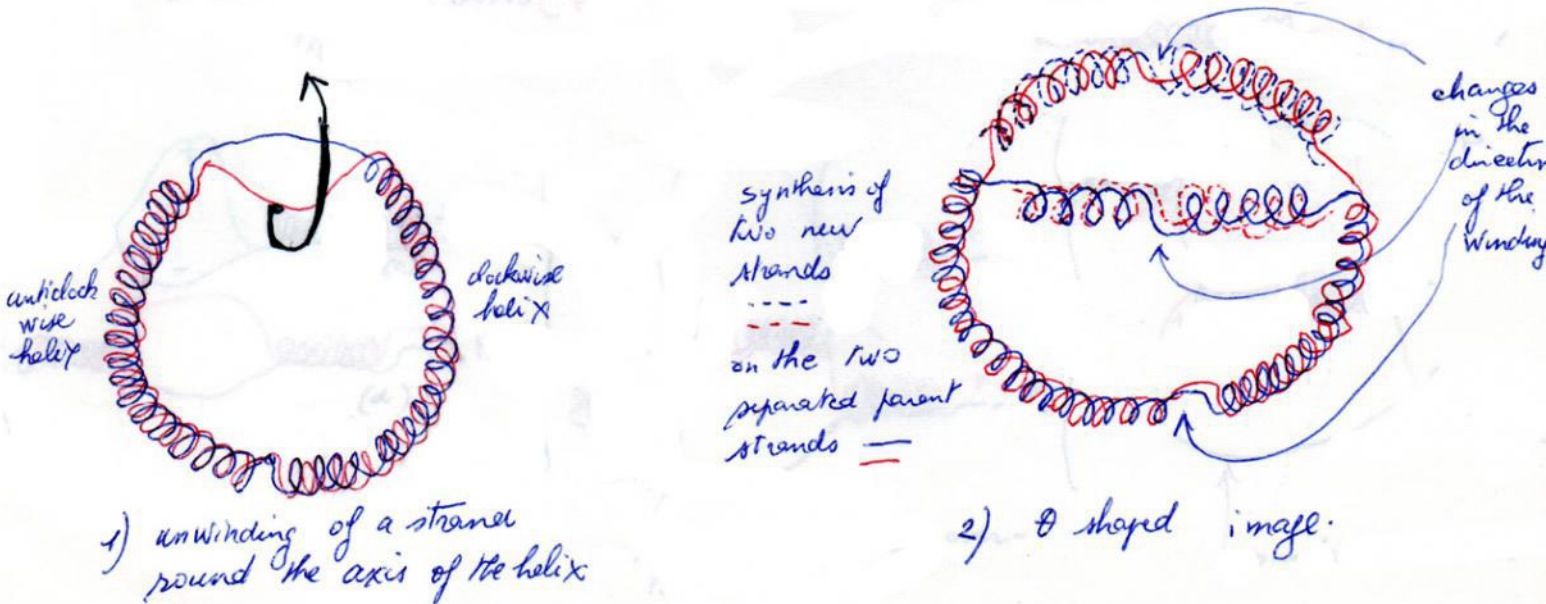 anticlock
wise
helix
clockwise
helix
1) unwinding of a strand
round the axis of the helix
synthesis of
two new
strands
on the two
separated parent
strands
changes
in the
direction
of the
winding
2) θ shaped image.